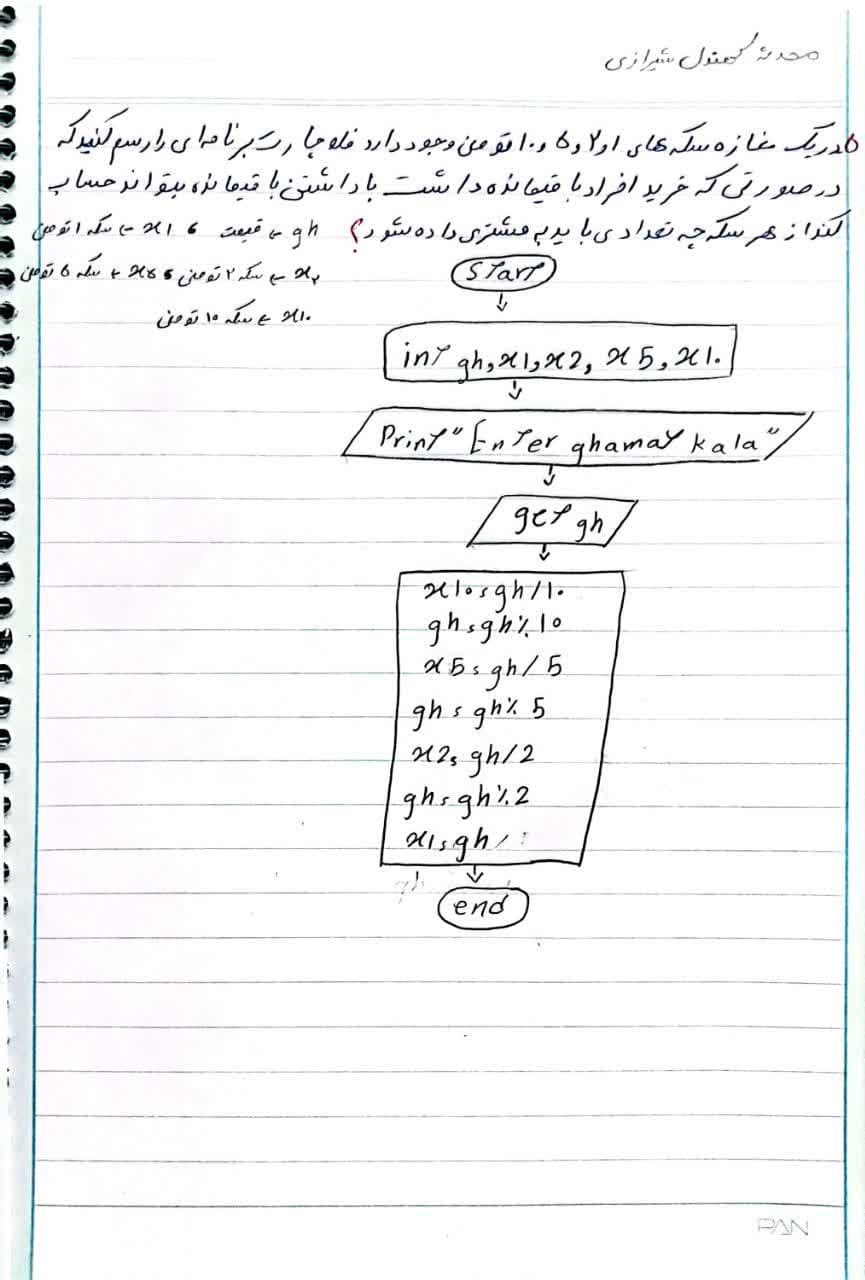 شیرازی
در یک مغازه سکه های ۱ و ۲ و ۵ و ۱۰ تومنی وجود دارد فلوچارت برنامه ای را رسم کنید که
در صورتی که خرید افراد باقیمانده داشت با داشتن باقیمانده بتواند حساب
کند از هر سکه چه تعدادی باید به مشتری داده شود؟
gh ← قیمت ، x1 ← سکه ۱ تومنی
x۲ ← سکه ۲ تومنی ، x۵ ← سکه ۵ تومنی
x۱۰ ← سکه ۱۰ تومنی
Start
int gh, x1, x2, x5, x1۰
Print "Enter ghamat kala"
get gh
x1۰ = gh/1۰
gh = gh%10
x5 = gh/5
gh = gh%5
x2 = gh/2
gh = gh%2
x1 = gh/
end
PAN